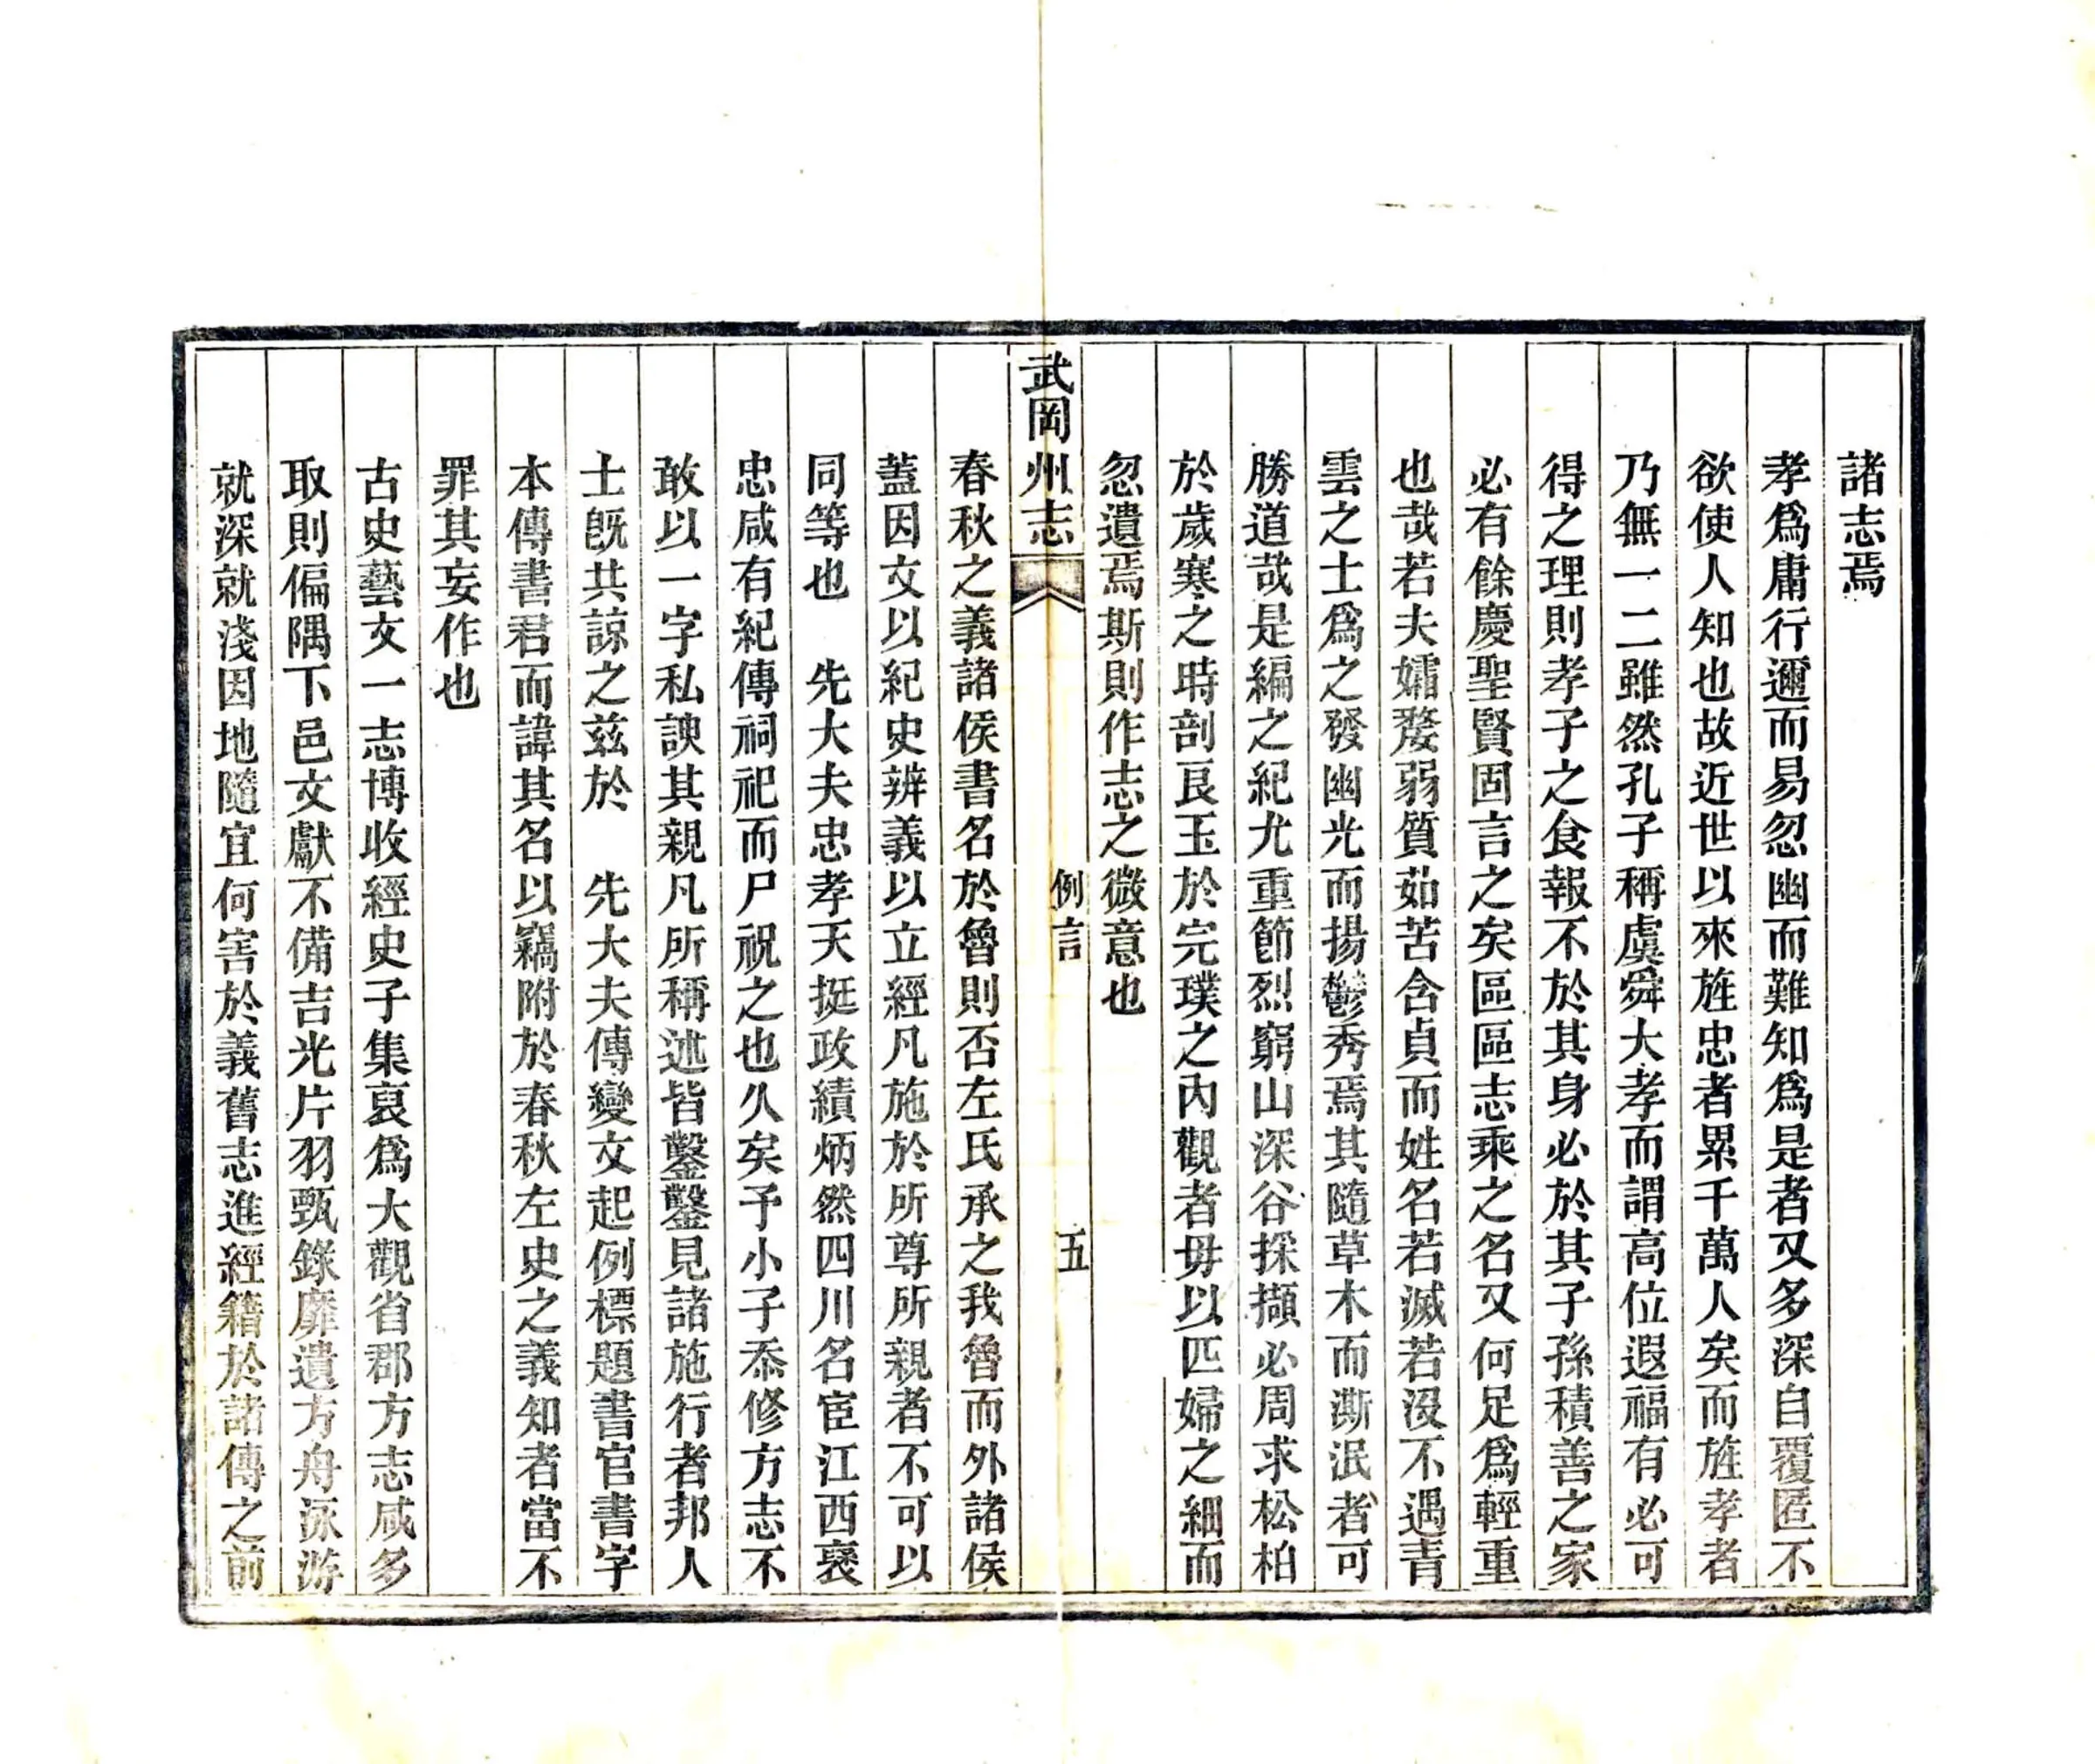 諸志焉
孝爲庸行邇而易忽幽而難知爲是者又多深自覆匿不
欲使人知也故近世以來旌忠者累千萬人矣而旌孝者
乃無一二雖然孔子稱虞舜大孝而謂高位遐福有必可
得之理則孝子之食報不於其身必於其子孫積善之家
必有餘慶聖賢固言之矣區區志乘之名又何足爲輕重
也哉若夫孀嫠弱質茹苦含貞而姓名若滅若沒不遇青
雲之士爲之發幽光而揚鬱秀焉其隨草木而澌泯者可
勝道哉是編之紀尤重節烈窮山深谷採擷必周求松柏
於歲寒之時剖良玉於完璞之內觀者毋以匹婦之細而
忽遺焉斯則作志之微意也
武岡州志
例言
五
春秋之義諸侯書名於魯則否左氏承之我魯而外諸侯
蓋因文以紀史辨義以立經凡施於所尊所親者不可以
同等也　先大夫忠孝天挺政績炳然四川名宦江西褒
忠咸有紀傳祠祀而尸祝之也久矣予小子忝修方志不
敢以一字私諛其親凡所稱述皆鑿鑿見諸施行者邦人
士旣共諒之兹於　先大夫傳變文起例標題書官書字
本傳書君而諱其名以竊附於春秋左史之義知者當不
罪其妄作也
古史藝文一志博收經史子集裒爲大觀省郡方志咸多
取則偏隅下邑文獻不備吉光片羽甄錄靡遺方舟泳游
就深就淺因地隨宜何害於義舊志進經籍於諸傳之前